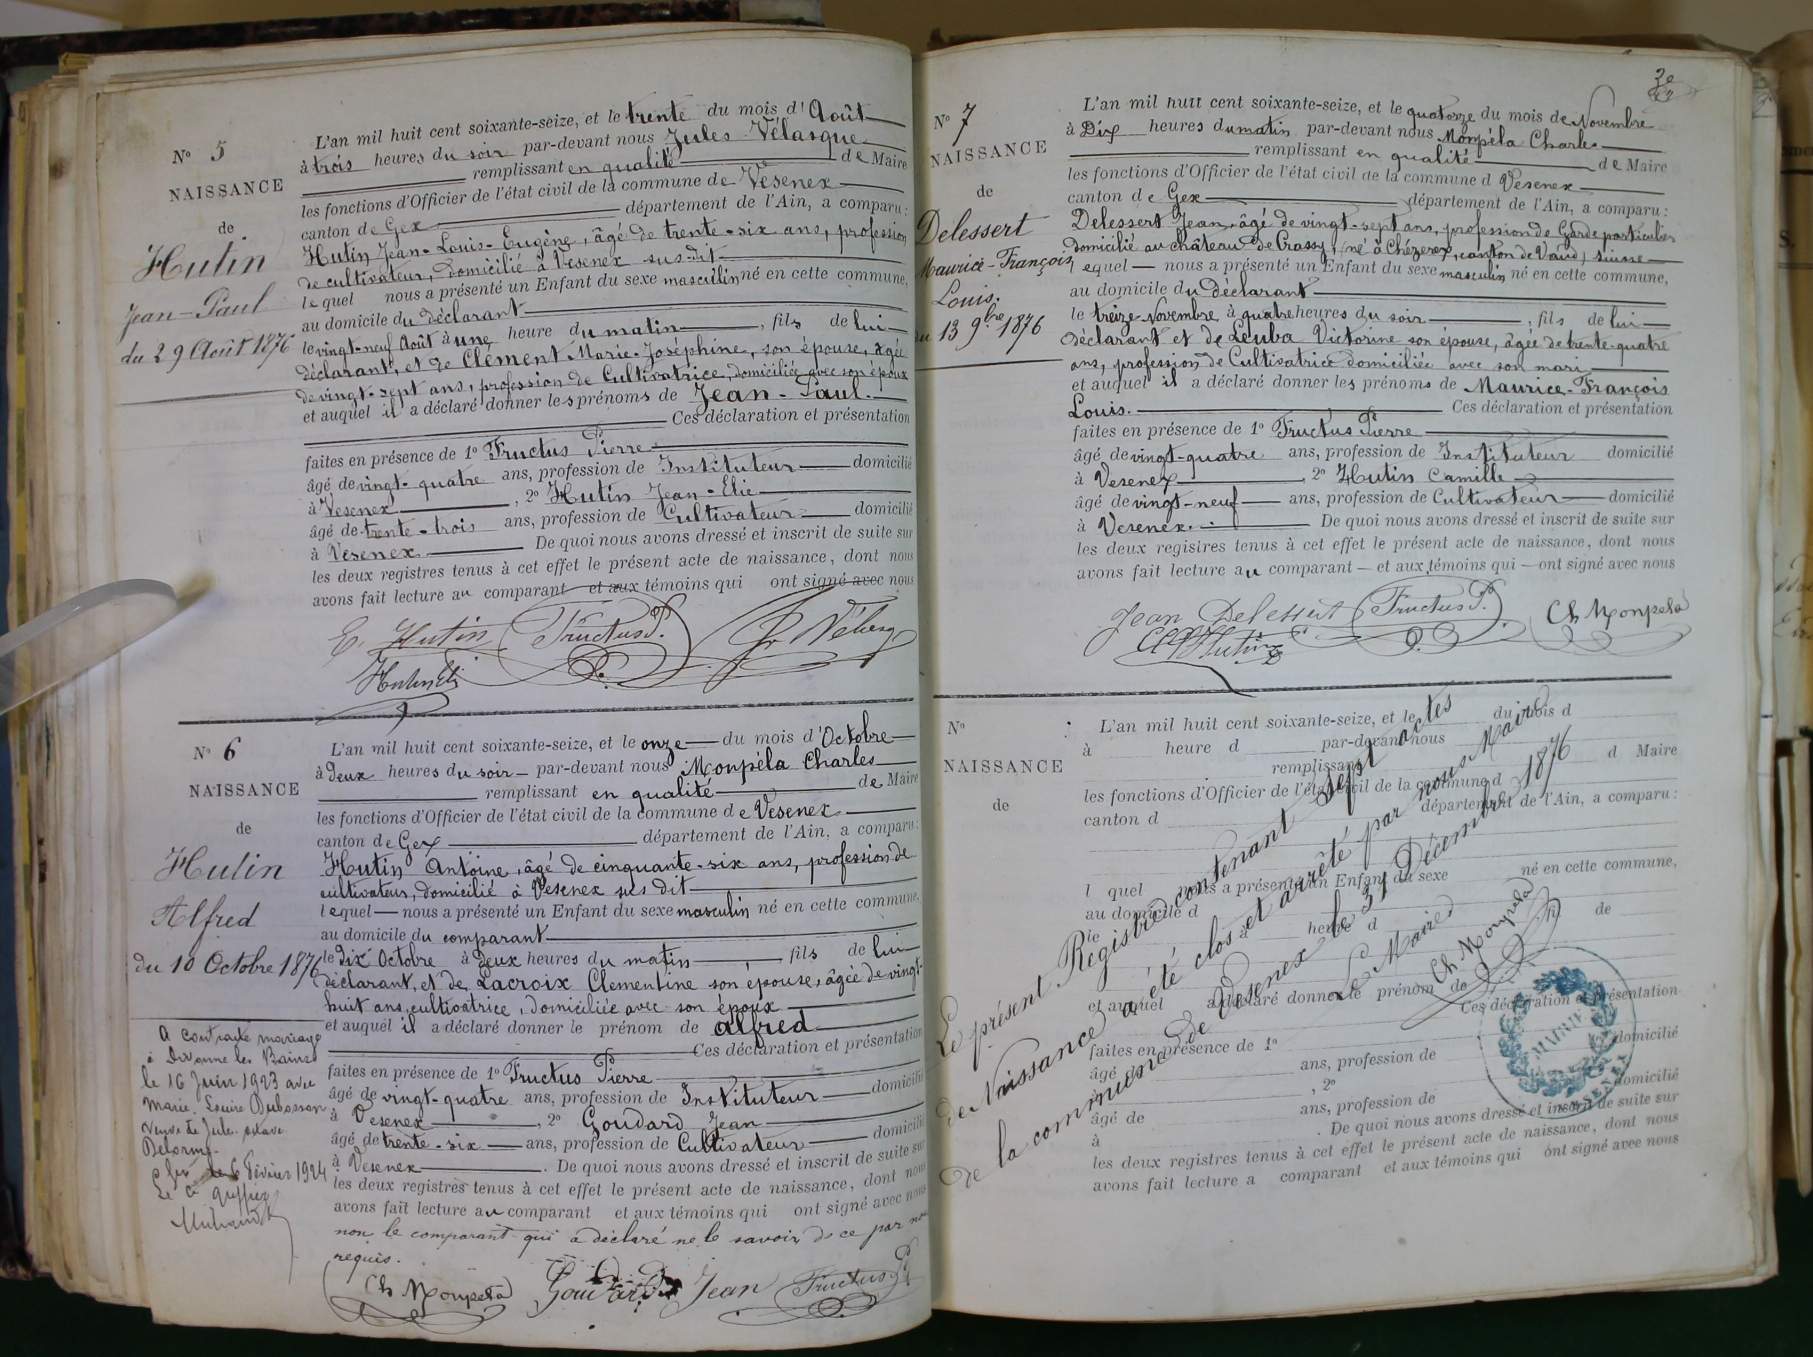 N° 5
NAISSANCE
de
Hutin
Jean-Paul
du 29 Août 1876
L'an mil huit cent soixante-seize, et le trente du mois d'Août
à trois heures du soir par-devant nous Jules Vélasque
remplissant en qualité de Maire
les fonctions d'Officier de l'état civil de la commune de Vesenex
canton de Gex département de l'Ain, a comparu :
Hutin Jean-Louis-Eugène, âgé de trente-six ans, profession
de cultivateur, domicilié à Vesenex sus-dit
lequel nous a présenté un Enfant du sexe masculin né en cette commune,
au domicile du déclarant
le vingt-neuf Août à une heure du matin, fils de lui
déclarant, et de Clément Marie-Joséphine, son épouse, âgée
de vingt-sept ans, profession de Cultivatrice, domiciliée avec son époux
et auquel il a déclaré donner les prénoms de Jean-Paul.
Ces déclaration et présentation
faites en présence de 1° Fructus Pierre
âgé de vingt-quatre ans, profession de Instituteur domicilié
à Vesenex, 2° Hutin Jean-Elie
âgé de trente-trois ans, profession de Cultivateur domicilié
à Vesenex. De quoi nous avons dressé et inscrit de suite sur
les deux registres tenus à cet effet le présent acte de naissance, dont nous
avons fait lecture au comparant et aux témoins qui ont signé avec nous
E. Hutin Fructus P.
Hutin Eli
N° 6
NAISSANCE
de
Hutin
Alfred
du 10 Octobre 1876
A contracté mariage
à Divonne les Bains
le 16 Juin 1923 avec
Marie Louise Dubosson
veuve de Jules
Delorme
6 Février 1924
Le greffier
L'an mil huit cent soixante-seize, et le onze du mois d'Octobre
à deux heures du soir par-devant nous Monpéla Charles
remplissant en qualité de Maire
les fonctions d'Officier de l'état civil de la commune de Vesenex
canton de Gex département de l'Ain, a comparu :
Hutin Antoine, âgé de cinquante-six ans, profession de
cultivateur, domicilié à Vesenex sus dit
lequel nous a présenté un Enfant du sexe masculin né en cette commune,
au domicile du comparant
le dix Octobre à deux heures du matin, fils de lui
déclarant, et de Lacroix Clementine son épouse, âgée de vingt-
huit ans, cultivatrice, domiciliée avec son époux
et auquel il a déclaré donner le prénom de Alfred
Ces déclaration et présentation
faites en présence de 1° Fructus Pierre
âgé de vingt-quatre ans, profession de Instituteur domicilié
à Vesenex, 2° Goudard Jean
âgé de trente-six ans, profession de Cultivateur domicilié
à Vesenex. De quoi nous avons dressé et inscrit de suite sur
les deux registres tenus à cet effet le présent acte de naissance, dont nous
avons fait lecture au comparant et aux témoins qui ont signé avec nous
non le comparant qui a déclaré ne le savoir de ce par nous
requis.
Ch Monpela Goudard Jean Fructus P.
N° 7
NAISSANCE
de
Delessert
Maurice-François
Louis.
du 13 9bre 1876
L'an mil huit cent soixante-seize, et le quatorze du mois de Novembre
à Dix heures du matin par-devant nous Monpéla Charles
remplissant en qualité de Maire
les fonctions d'Officier de l'état civil de la commune d Vesenex
canton de Gex département de l'Ain, a comparu :
Delessert Jean, âgé de vingt-sept ans, profession de Garde particulier
domicilié au château de Crassy, né à Chézerex, canton de Vaud, Suisse
lequel nous a présenté un Enfant du sexe masculin né en cette commune,
au domicile du déclarant
le treize Novembre à quatre heures du soir, fils de lui
déclarant et de Leuba Victorine son épouse, âgée de trente-quatre
ans, profession de Cultivatrice domiciliée avec son mari
et auquel il a déclaré donner les prénoms de Maurice-François
Louis. Ces déclaration et présentation
faites en présence de 1° Fructus Pierre
âgé de vingt-quatre ans, profession de Instituteur domicilié
à Vesenex, 2° Hutin Camille
âgé de vingt-neuf ans, profession de Cultivateur domicilié
à Vesenex. De quoi nous avons dressé et inscrit de suite sur
les deux registres tenus à cet effet le présent acte de naissance, dont nous
avons fait lecture au comparant et aux témoins qui ont signé avec nous
Jean Delessert Fructus P. Ch Monpela
Hutin
N°
NAISSANCE
de
L'an mil huit cent soixante-seize, et le du mois d
à heure d par-devant nous
remplissant d Maire
les fonctions d'Officier de l'état civil de la commune d
canton d département de l'Ain, a comparu :
l quel nous a présenté un Enfant du sexe né en cette commune,
au domicile d
le à heure d fil de
et auquel a déclaré donner le prénom de
Ces déclaration et présentation
faites en présence de 1°
âgé de ans, profession de domicilié
à , 2°
âgé de ans, profession de domicilié
à . De quoi nous avons dressé et inscrit de suite sur
les deux registres tenus à cet effet le présent acte de naissance, dont nous
avons fait lecture a comparant et aux témoins qui ont signé avec nous
Le présent Registre contenant sept actes
de Naissance a été clos et arrêté par nous Maire
de la commune de Vesenex le 31 Décembre 1876
Le Maire
Ch Monpela
MAIRIE